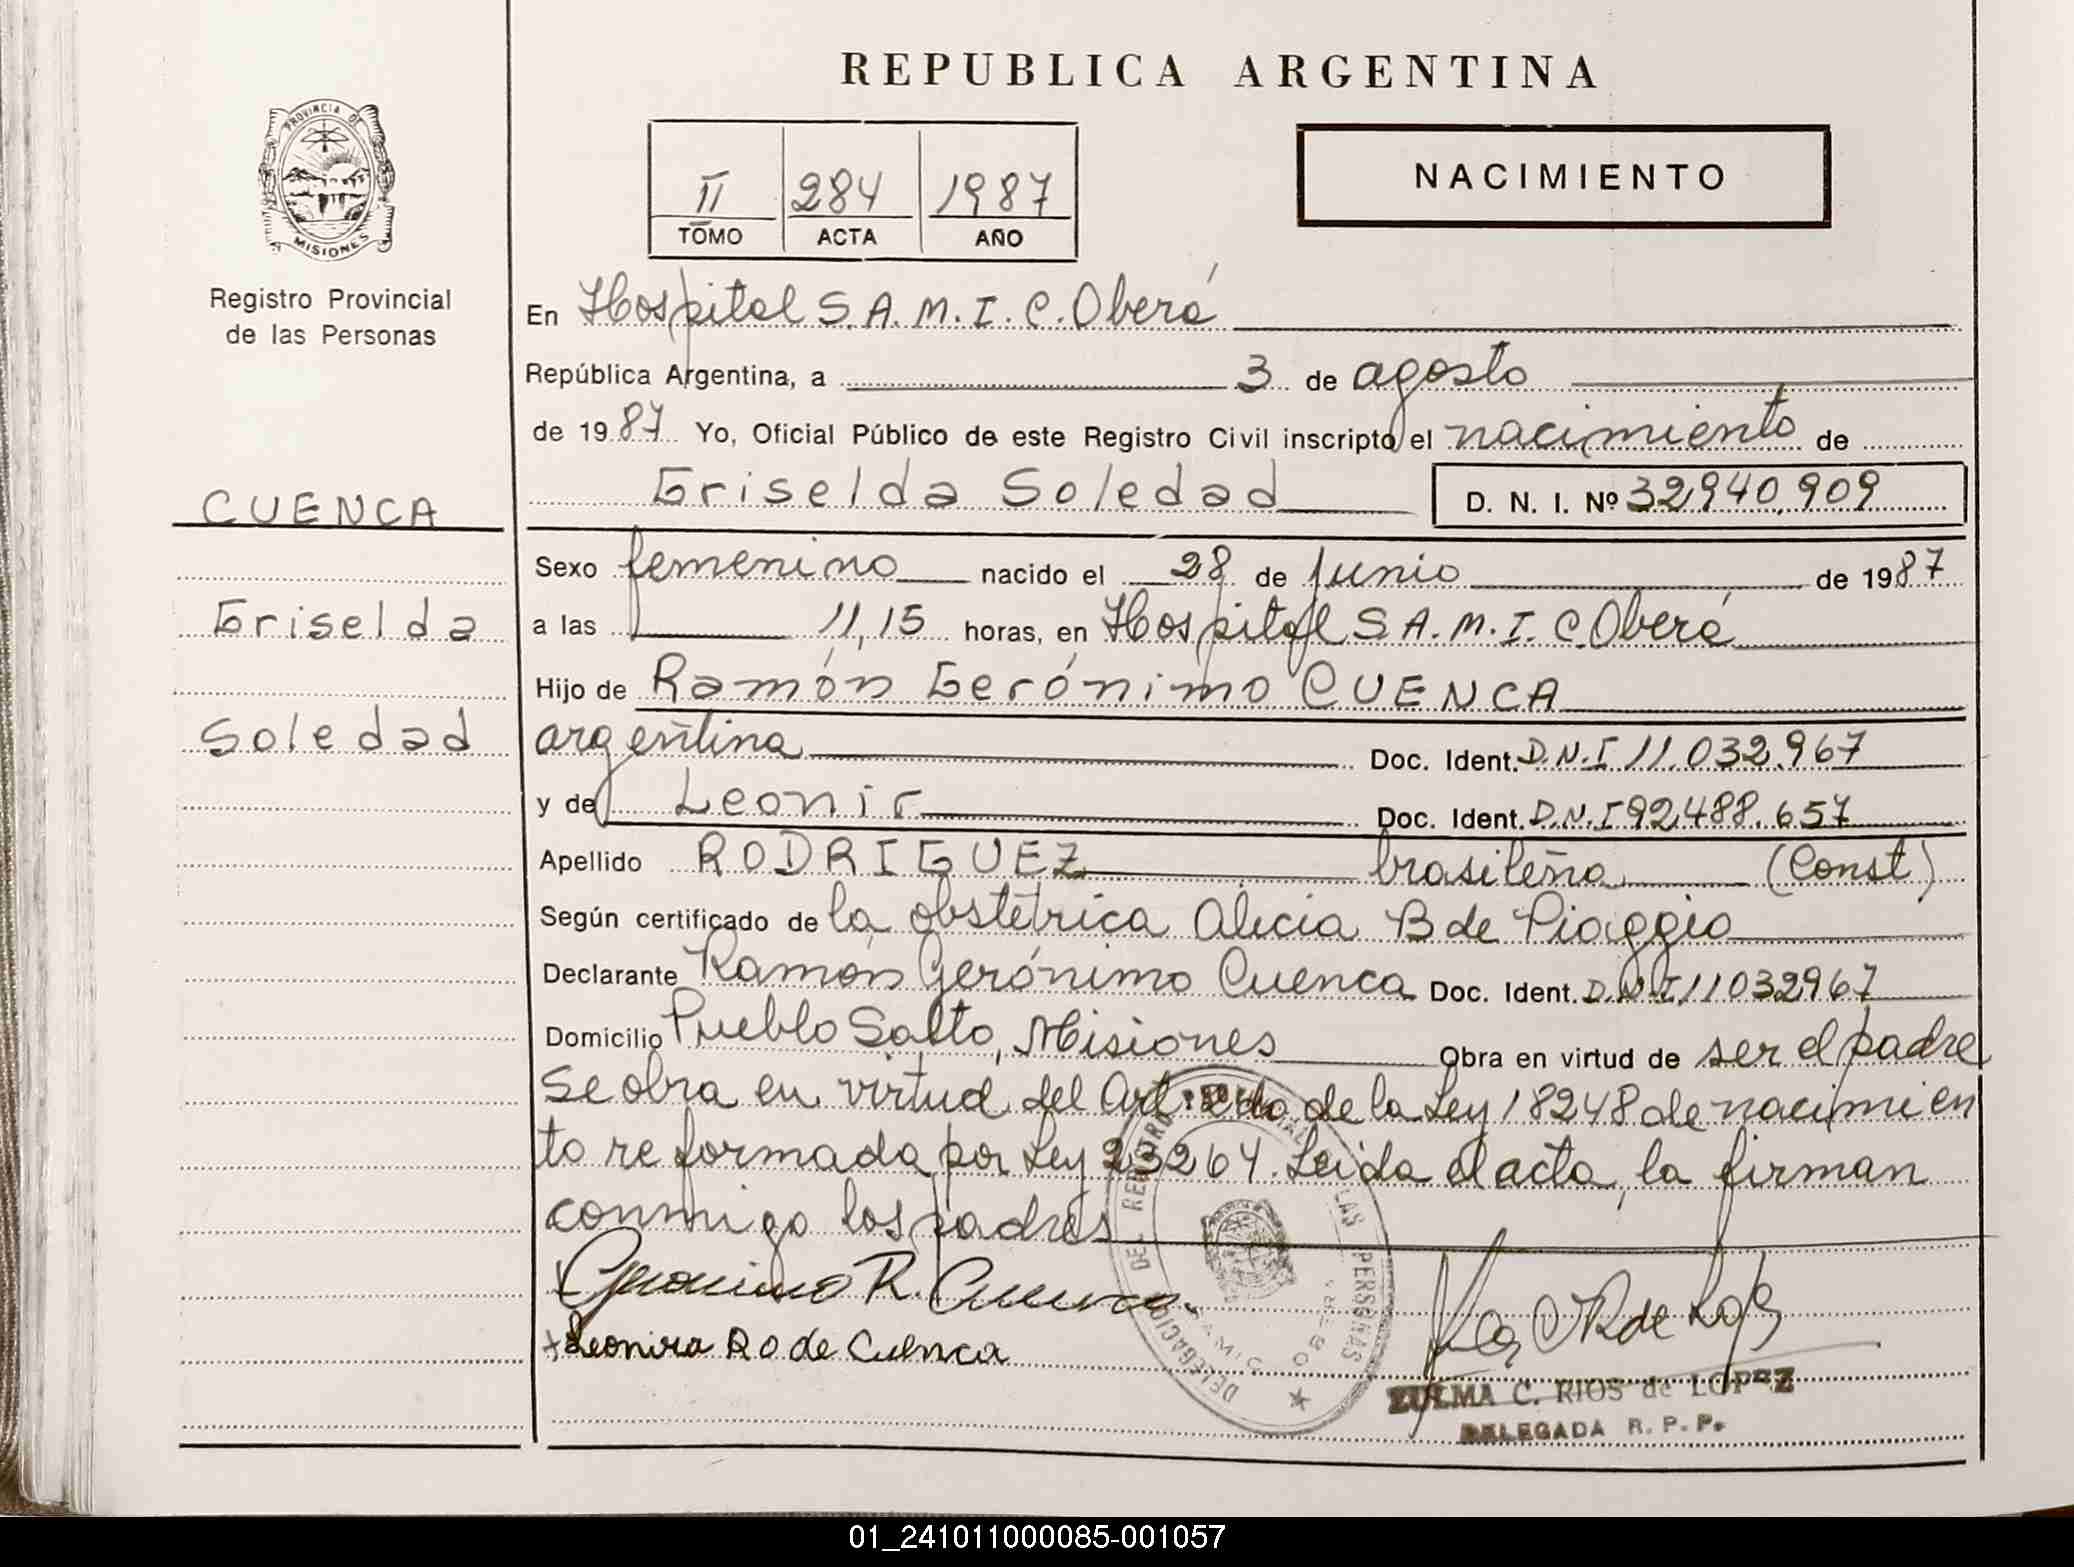 REPUBLICA ARGENTINA
PROVINCIA DE
MISIONES
Registro Provincial
de las Personas
II 284 1987
TOMO ACTA AÑO
NACIMIENTO
En Hospital S.A.M.I.C. Oberá
República Argentina, a 3 de agosto
de 1987 Yo, Oficial Público de este Registro Civil inscripto el nacimiento de
Griselda Soledad D. N. I. Nº 32.940.909
CUENCA
Griselda
Soledad
Sexo femenino nacido el 28 de junio de 1987
a las 11,15 horas, en Hospital S.A.M.I.C. Oberá
Hijo de Ramón Gerónimo CUENCA
argentina Doc. Ident. D.N.I 11.032.967
y de Leonir Doc. Ident. D.N.I 92.488.657
Apellido RODRIGUEZ brasileña (Const)
Según certificado de la obstétrica Alicia B de Piaggio
Declarante Ramón Gerónimo Cuenca Doc. Ident. D.N.I. 11032967
Domicilio Pueblo Salto, Misiones Obra en virtud de ser el padre
Se obra en virtud del Art 2do de la Ley 18248 de nacimien
to reformada por Ley 23264. Leida el acta, la firman
conmigo los padres
Geronimo R. Cuenca
+ Leonira RO de Cuenca
DELEGACION DEL REGISTRO PROVINCIAL DE LAS PERSONAS
SAMIC OBERA
ZULMA C. RIOS de LOPEZ
DELEGADA R. P. P.
01_241011000085-001057